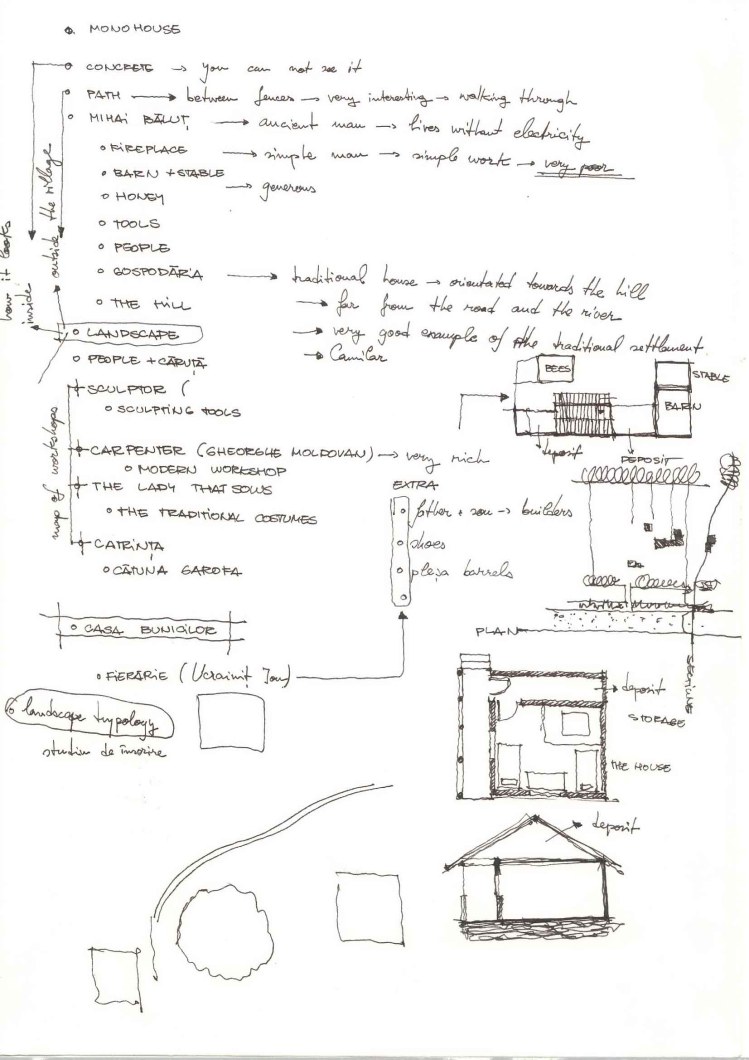 MONO HOUSE
CONCRETE → you can not see it
PATH → between fences → very interesting → walking through
MIHAI BĂLUȚ → ancient man → lives without electricity
FIREPLACE → simple man → simple work → very poor
BARN + STABLE → generous
HONEY
TOOLS
PEOPLE
GOSPODĂRIA → traditional house → orientated towards the hill
THE HILL → far from the road and the river
LANDSCAPE → very good example of the traditional settlement
PEOPLE + CĂRUȚĂ → Camilar
SCULPTOR (
SCULPTING TOOLS
CARPENTER (GHEORGHE MOLDOVAN) → very rich
MODERN WORKSHOP
THE LADY THAT SOWS
THE TRADITIONAL COSTUMES
CATRINȚA
CĂTUNA GAROFA
CASA BUNICILOR
FIERĂRIE (Ucrainiț Ion)
how it looks
inside
outside the village
map of workshops
EXTRA
father + son → builders
shoes
barrels
BEES
STABLE
BARN
deposit
DEPOSIT
PLAN
SECTIUNE
landscape typology
studiu de însorire
deposit
STORAGE
THE HOUSE
deposit